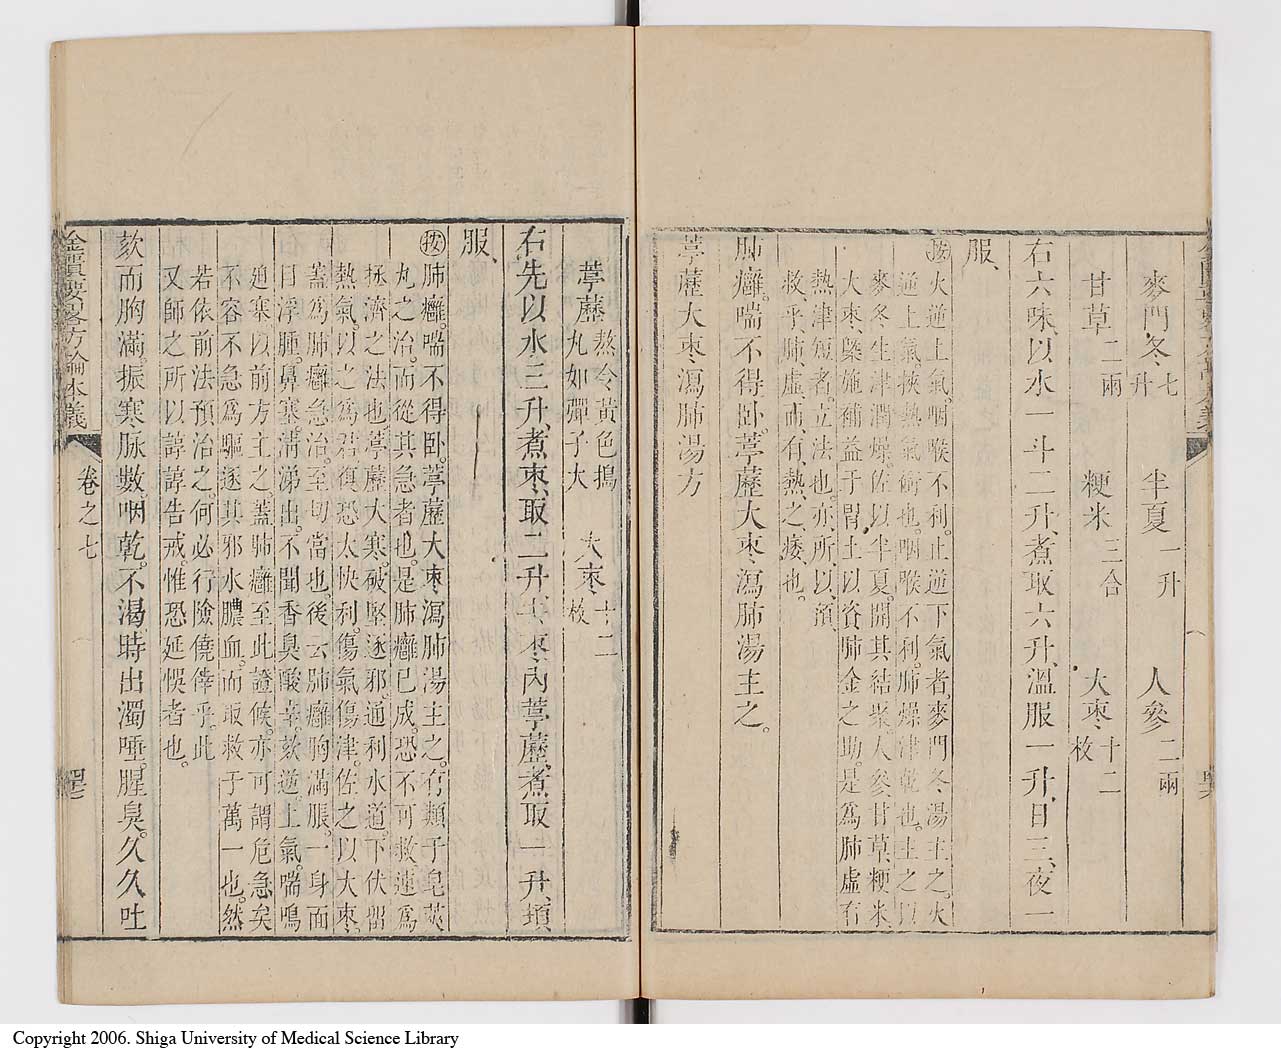 麥門冬七升　半夏一升　人參二兩
甘草二兩　粳米三合　大棗十二枚
右六味、以水一斗二升、煮取六升、溫服一升、日三、夜一
服、
按火逆上氣、咽喉不利、止逆下氣者、麥門冬湯主之。火
逆上氣、挾熱氣衝也。咽喉不利。肺燥津乾也。主之以
麥冬生津潤燥。佐以半夏。開其結聚。人參甘草粳米、
大棗、槩施補益于胃土以資肺金之助。是爲肺虛有
熱津短者。立法也。亦所以預
救、乎、肺、虛、而、有、熱、之、痿、也。
肺癰。喘不得卧。葶藶大棗、瀉肺湯主之。
葶藶大棗、瀉肺湯方
葶藶熬令黃色搗丸如彈子大　大棗十二枚
右先以水三升、煮棗、取二升、去棗、內葶藶、煮取一升、頓
服、
按肺癰。喘不得卧。葶藶大棗瀉肺湯主之。有類于皂莢
丸之治。而從其急者也。是肺癰已成。恐不可救。運爲
拯濟之法也。葶藶大寒。破堅逐邪。通利水道。下伏留
熱氣。以之爲君。復恐太快利。傷氣傷津。佐之以大棗。
蓋爲肺癰急治。至切當也。後云肺癰胸滿脹。一身面
目浮腫。鼻塞。淸涕出。不聞香臭酸辛。欬逆。上氣。喘鳴
迫塞。以前方主之。蓋肺癰至此證候。亦可謂危急矣
不容不急爲驅逐其邪水膿血。而取救于萬一也。然
若依前法預治之。何必行險僥倖乎。此
又師之所以諄諄告戒。惟恐延悞者也。
欬而胸滿。振寒脉數。咽乾。不渴。時出濁唾。腥臭。久久吐
金匱要略方論本義
卷之七